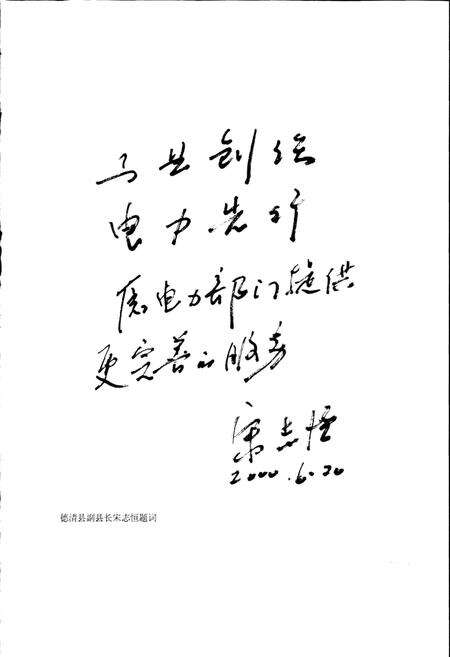 电力先行
电力部门提供
更完善的服务
宋志恒
2000.6.20
德清县副县长宋志恒题词